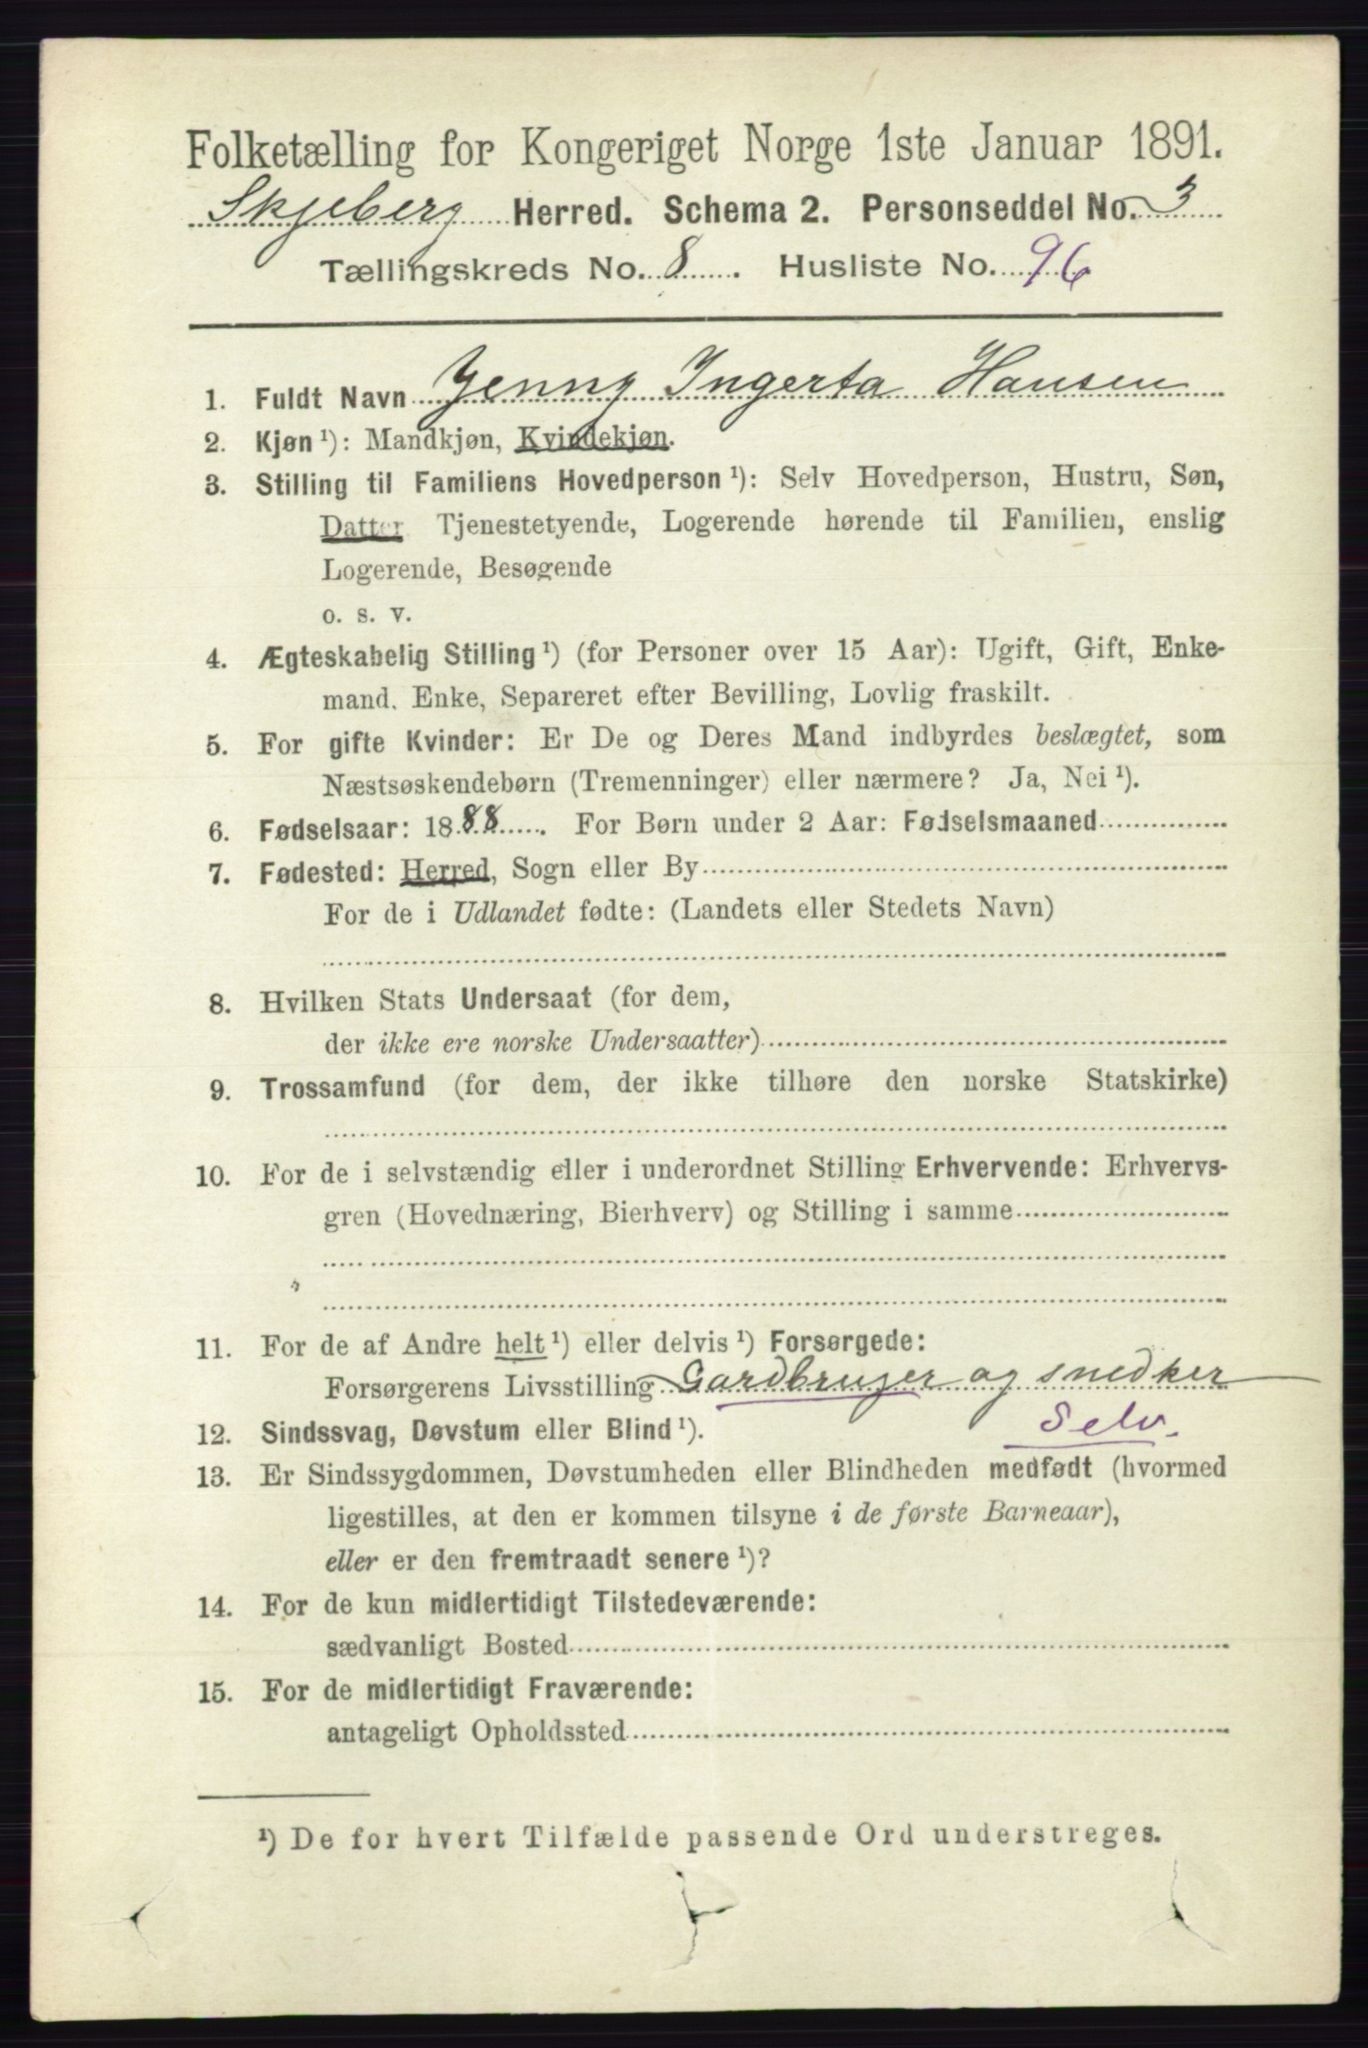 Folketælling for Kongeriget Norge 1ste Januar 1891.
Skjeberg Herred. Schema 2. Personseddel No. 3
Tællingskreds No. 8. Husliste No. 96
1. Fuldt Navn Jenny Ingerta Hansen
2. Kjøn ¹): Mandkjøn, Kvindekjøn.
3. Stilling til Familiens Hovedperson ¹): Selv Hovedperson, Hustru, Søn,
Datter Tjenestetyende, Logerende hørende til Familien, enslig
Logerende, Besøgende
o. s. v.
4. Ægteskabelig Stilling ¹) (for Personer over 15 Aar): Ugift, Gift, Enke-
mand. Enke, Separeret efter Bevilling, Lovlig fraskilt.
5. For gifte Kvinder: Er De og Deres Mand indbyrdes beslægtet, som
Næstsøskendebørn (Tremenninger) eller nærmere? Ja, Nei ¹).
6. Fødselsaar: 1888. For Børn under 2 Aar: Fødselsmaaned
7. Fødested: Herred, Sogn eller By
For de i Udlandet fødte: (Landets eller Stedets Navn)
8. Hvilken Stats Undersaat (for dem,
der ikke ere norske Undersaatter)
9. Trossamfund (for dem, der ikke tilhøre den norske Statskirke)
10. For de i selvstændig eller i underordnet Stilling Erhvervende: Erhvervs-
gren (Hovednæring, Bierhverv) og Stilling i samme
11. For de af Andre helt ¹) eller delvis ¹) Forsørgede:
Forsørgerens Livsstilling Gardbruger og snedker
Selv.
12. Sindssvag, Døvstum eller Blind ¹).
13. Er Sindssygdommen, Døvstumheden eller Blindheden medfødt (hvormed
ligestilles, at den er kommen tilsyne i de første Barneaar),
eller er den fremtraadt senere ¹)?
14. For de kun midlertidigt Tilstedeværende:
sædvanligt Bosted
15. For de midlertidigt Fraværende:
antageligt Opholdssted
¹) De for hvert Tilfælde passende Ord understreges.